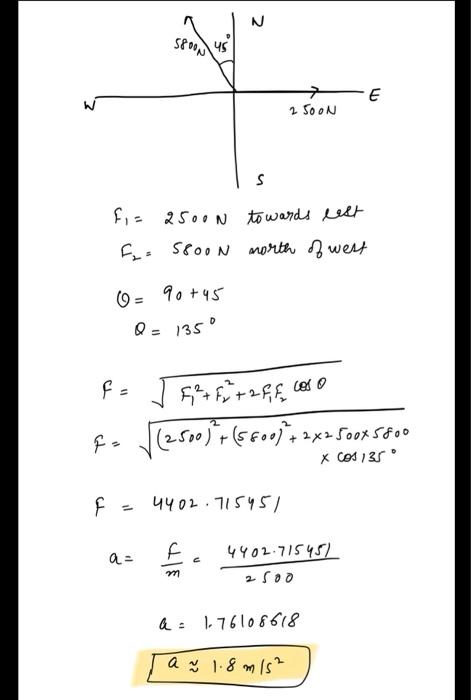 N
5800N 45°
W E
2500N
S
F₁ = 2500 N towards east
F₂ = 5800 N north of west
θ = 90 + 45
θ = 135°
F = √(F₁² + F₂² + 2F₁F₂ cos θ)
F = √((2500)² + (5800)² + 2 × 2500 × 5800
× cos 135°
F = 4402.715451
a = F/m = 4402.715451/2500
a = 1.76108618
a ≈ 1.8 m/s²